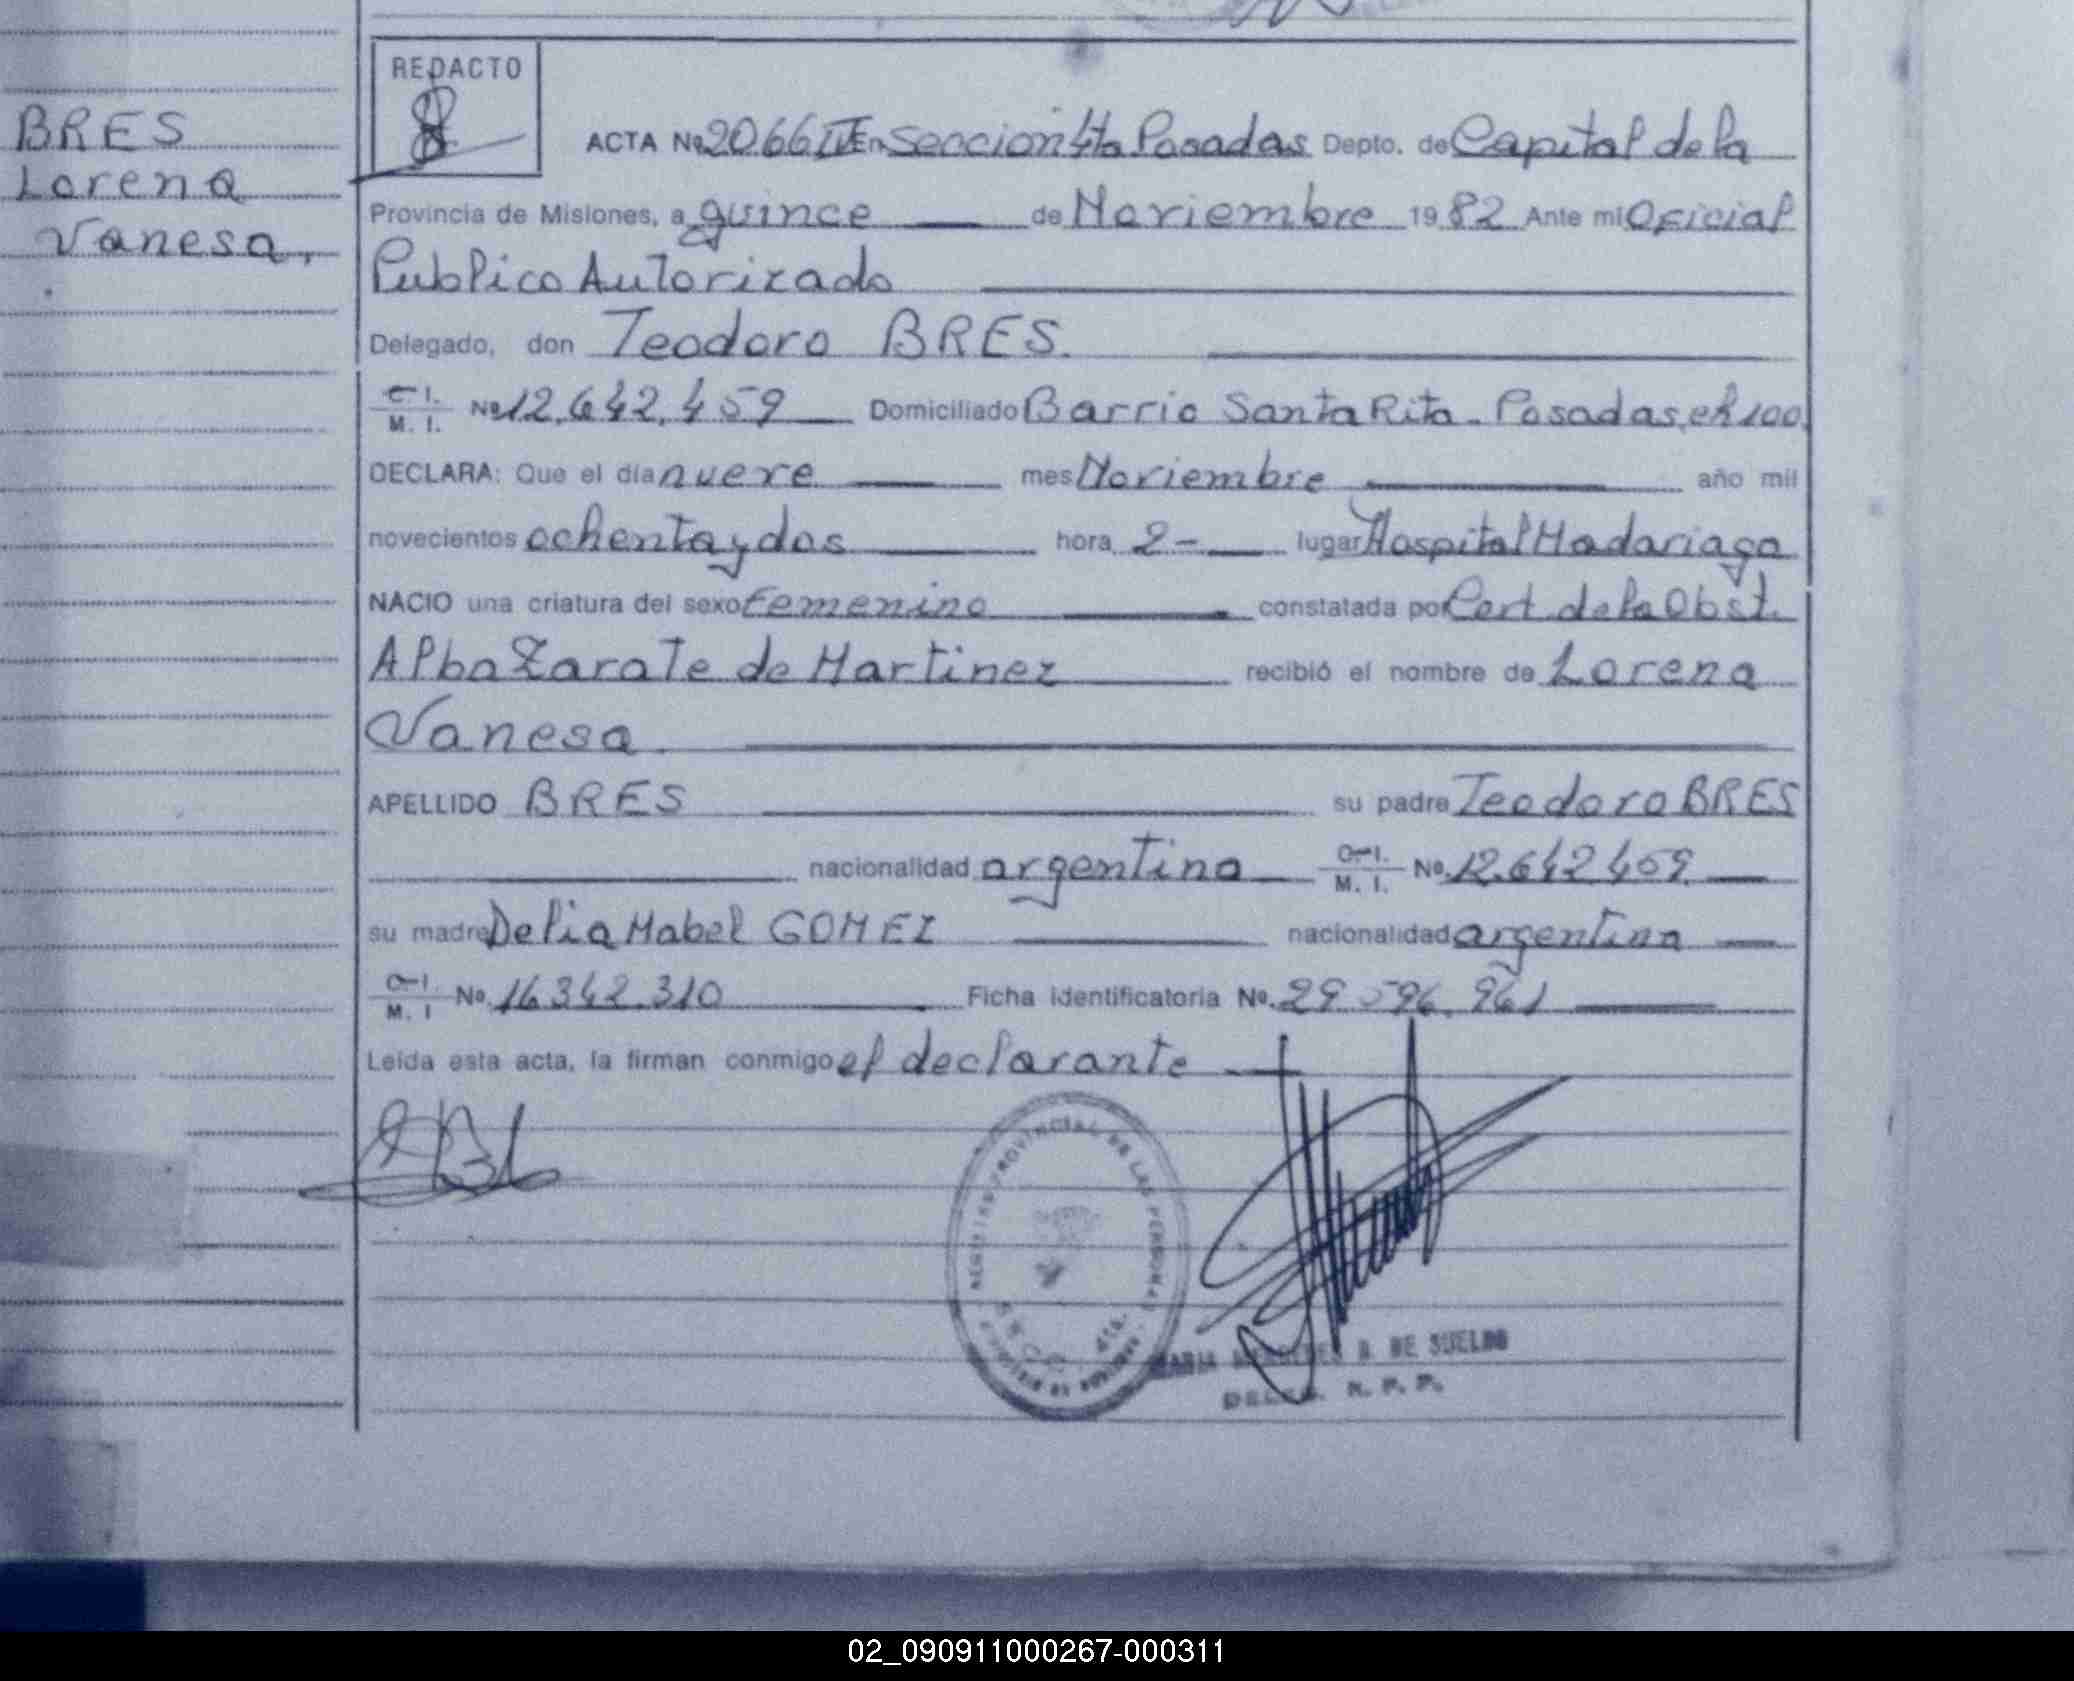 REDACTO
BRES
Lorena
Vanesa.
ACTA Nº 2066 IV En Seccion 4ta Posadas Depto. de Capital de la
Provincia de Misiones, a quince de Noviembre 1982 Ante mi Oficial
Publico Autorizado
Delegado, don Teodoro BRES.
C. I.
M. I. Nº 12.642.459 Domiciliado Barrio Santa Rita - Posadas, ch 100
DECLARA: Que el día nueve mes Noviembre año mil
novecientos ochenta y dos hora 2 - lugar Hospital Madariaga
NACIO una criatura del sexo femenino constatada por Cert. de la Obst.
Alba Zarate de Martinez recibió el nombre de Lorena
Vanesa
APELLIDO BRES su padre Teodoro BRES
nacionalidad argentina C. I.
M. I. Nº 12.642 459
su madre Delia Mabel GOMEZ nacionalidad argentina
C. I.
M. I Nº 16.342.310 Ficha identificatoria Nº 29.596.961
Leída esta acta, la firman conmigo el declarante
REGISTRO PROVINCIAL DE LAS PERSONAS
DE SUELDO
R. P. P.
02_090911000267-000311